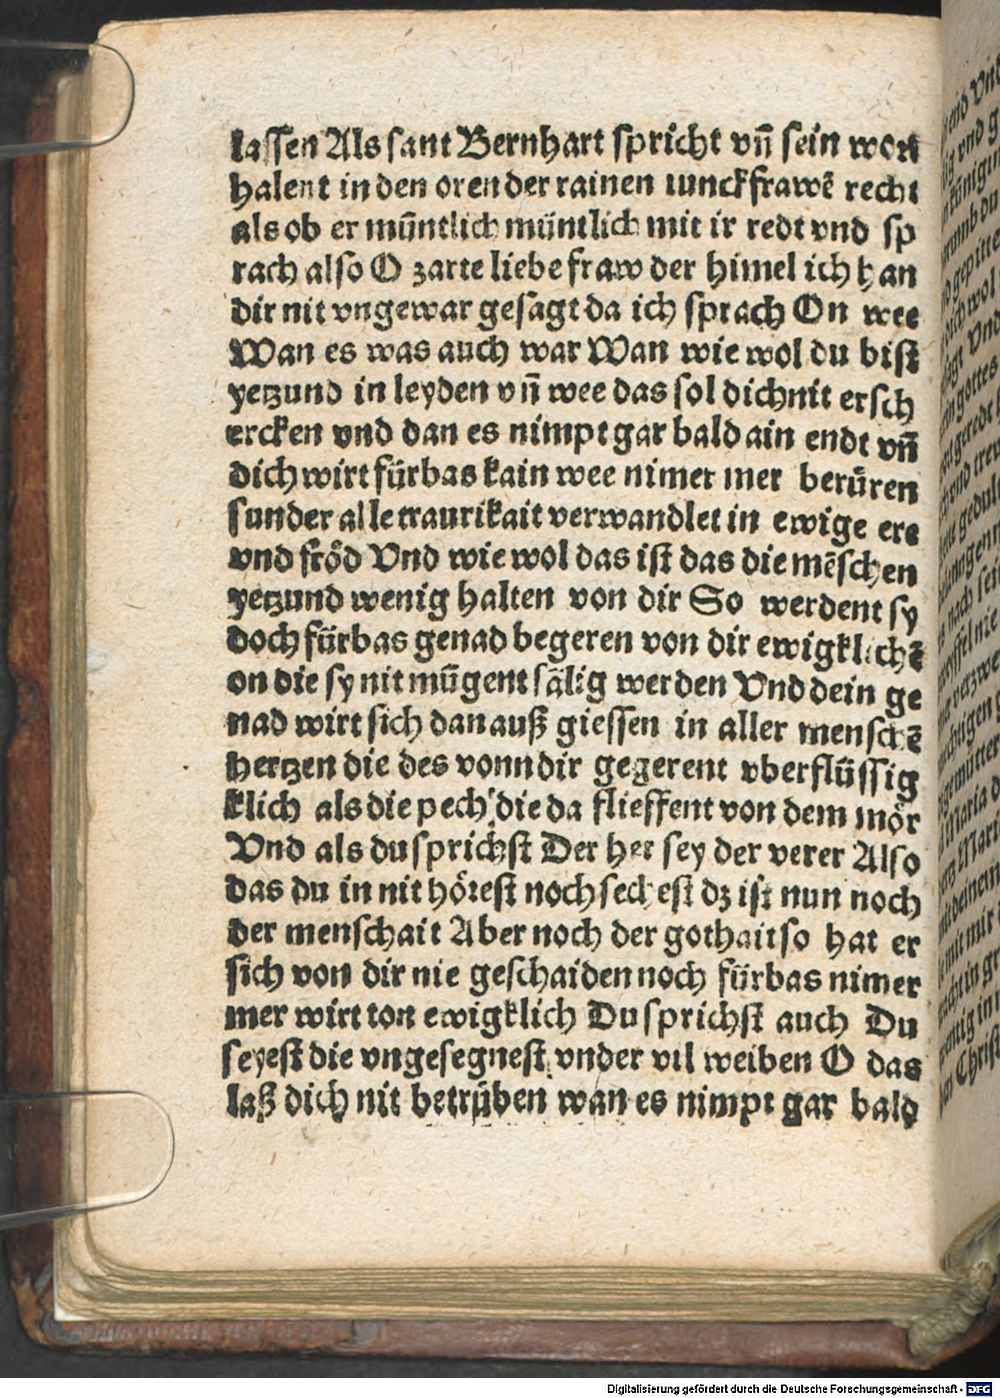 lassen Als sant Bernhart spricht vn̄ sein wort
halent in den oren der rainen iunckfrawē recht
als ob er mūntlich müntlich mit ir redt vnd sp
rach also O zarte liebe fraw der himel ich han
dir nit vngewar gesagt da ich sprach On wee
Wan es was auch war Wan wie wol du bist
yetzund in leyden vn̄ wee das sol dich nit ersch
ercken vnd dan es nimpt gar bald ain endt vn̄
dich wirt fürbas kain wee nimer mer berüren
sunder alle traurikait verwandlet in ewige ere
vnd fröd Vnd wie wol das ist das die mēschen
yetzund wenig halten von dir So werdent sy
doch fürbas genad begeren von dir ewigklichē
on die sy nit mūgent sälig werden Vnd dein ge
nad wirt sich dan auß giessen in aller menschē
hertzen die des vonn dir gegerent vberflüssig
klich als die pech die da fliessent von dem mör
Vnd als du sprichst Der her sey der verer Also
das du in nit hörest noch sechest dz ist nun noch
der menschait Aber noch der gothait so hat er
sich von dir nie geschaiden noch fürbas nimer
mer wirt ton ewigklich Du sprichst auch Du
seyest die vngesegnest vnder vil weiben O das
laß dich nit betrüben wan es nimpt gar bald
Digitalisierung gefördert durch die Deutsche Forschungsgemeinschaft - DFG